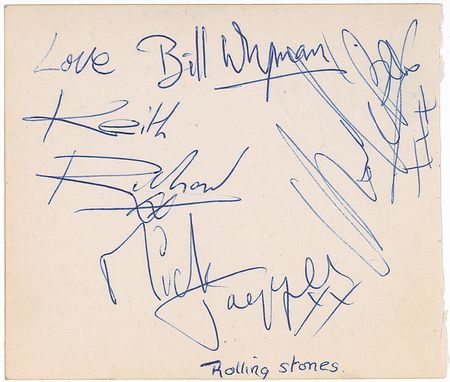 Love Bill Wyman
Keith
Richard
Mick
Jagger xx
Rolling stones.